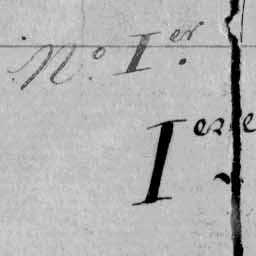 N.º I.er
I.er